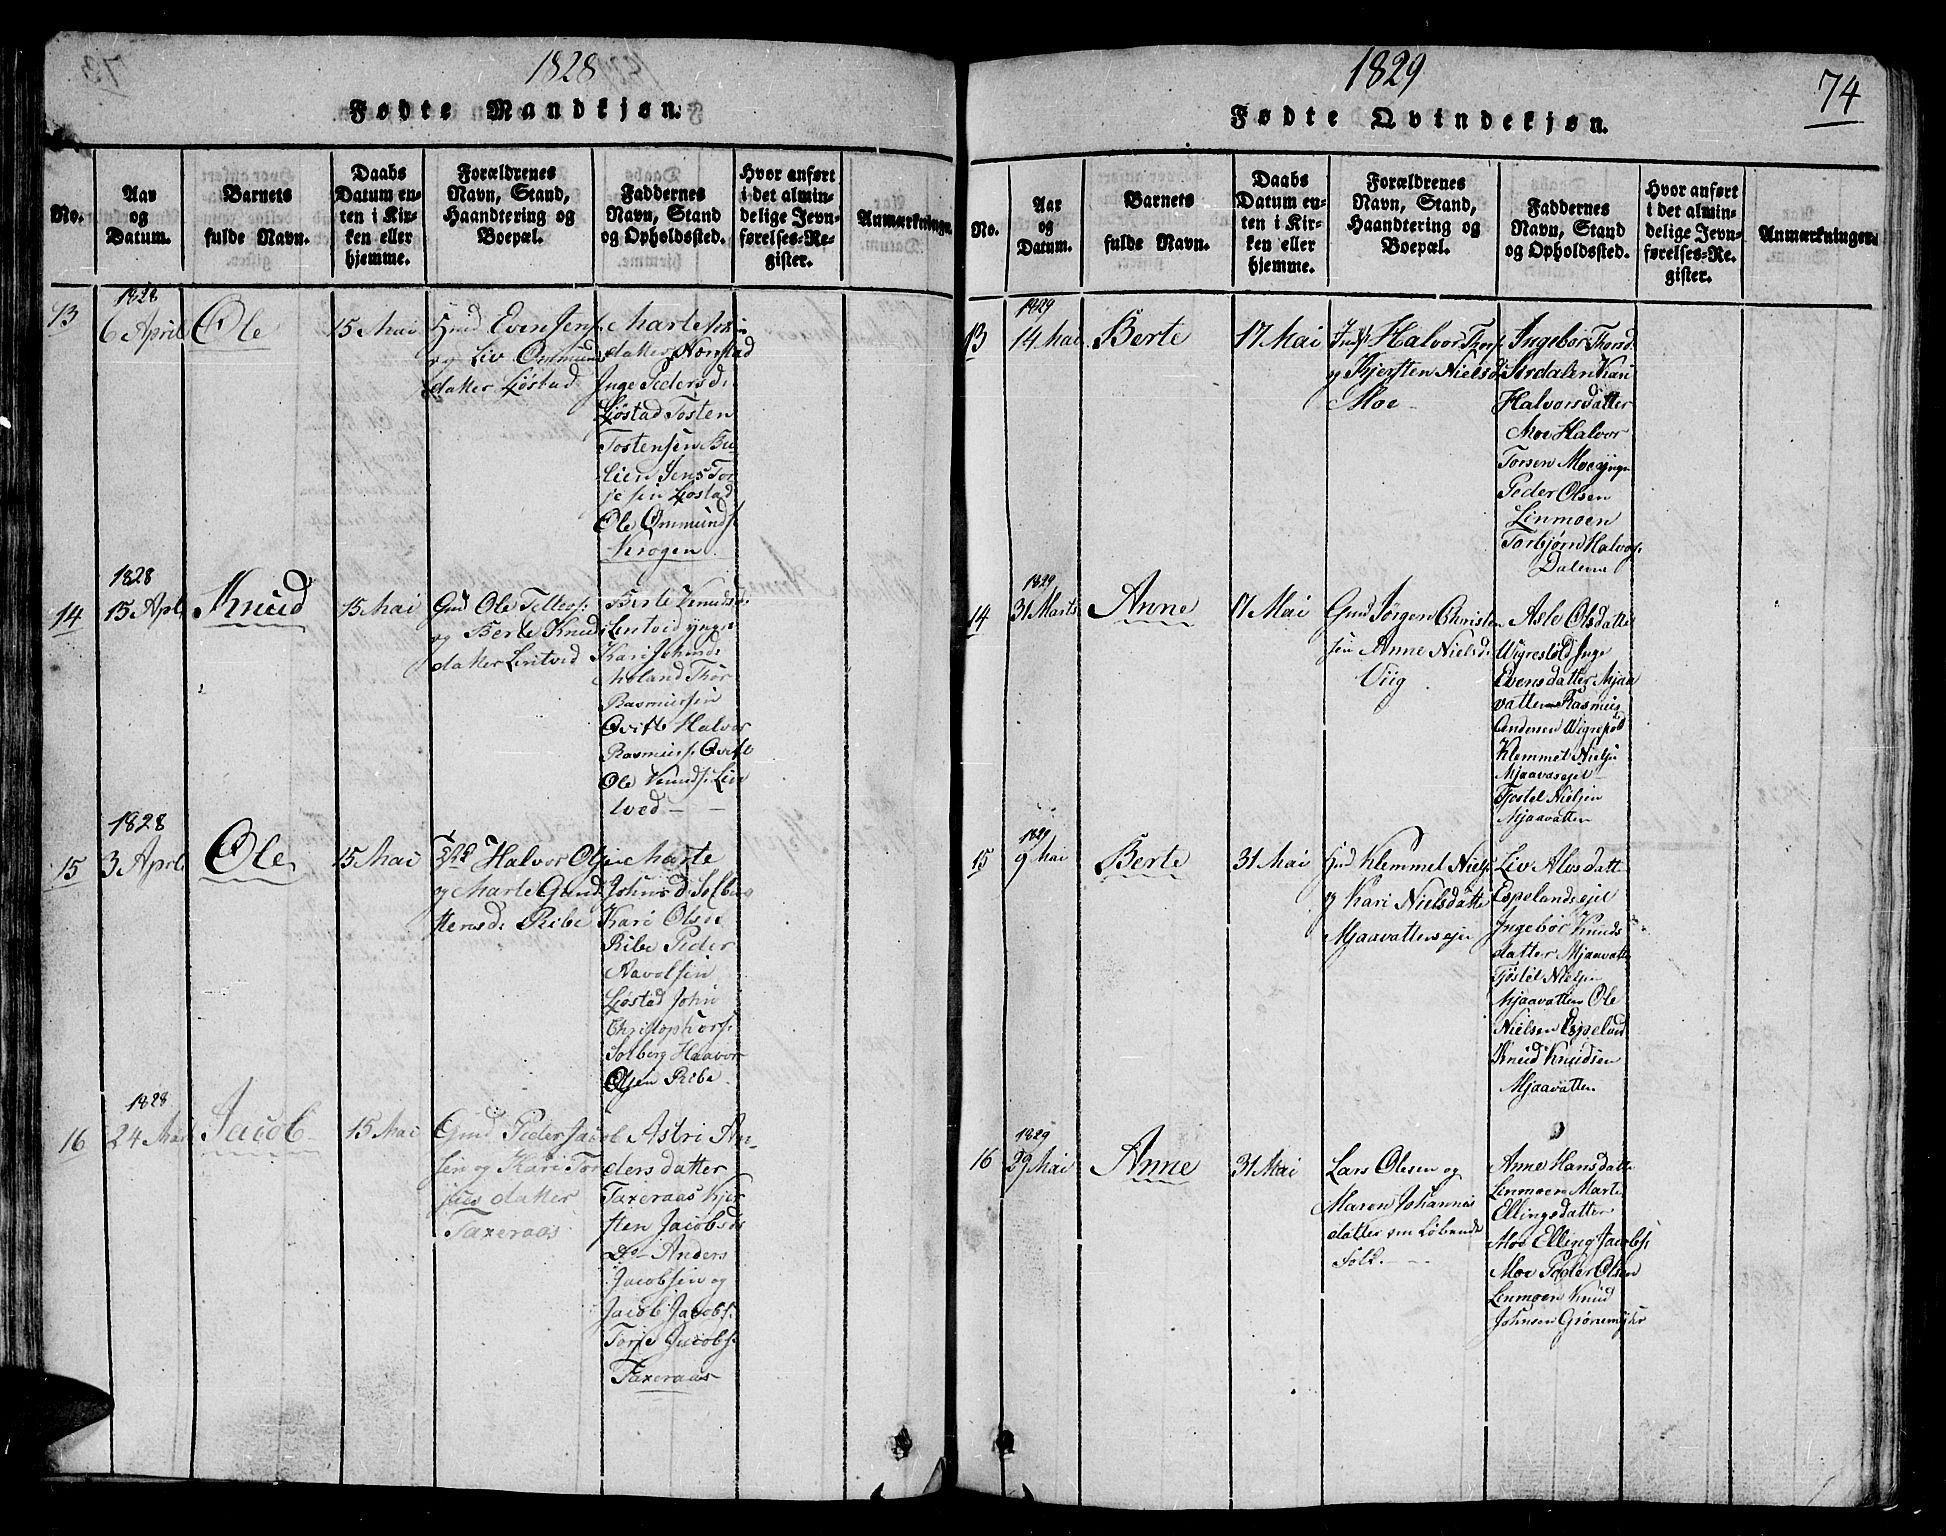 1828
Fødte Mandkjøn.
No.
Aar
og
Datum.
Barnets
fulde Navn.
Daabs
Datum en-
ten i Kir-
ken eller
hjemme.
Forældrenes
Navn, Stand,
Haandtering og
Boepæl.
Faddernes
Navn, Stand
og Opholdssted.
Hvor anført
i det almin-
delige Jevn-
førelses-Re-
gister.
Anmærkninger.
13
1828
6 April
Ole
15 Mai
Gmd Even Jens.
og Liv Ommunds
datter Ljøstad
Marte
datter Nonstad
Inge Pedersd.
Ljøstad Tosten
Tostensen Be-
lien Jens Tor
jesen Ljøstad
Ole Ommunds.
Verogen.
14
1828
15 Apl
Knud
15 Mai
Gmd Ole Tellefs.
og Berte Knuds
datter Lintvid
Berte Knudsd.
Lintvid yngr.
Kari Johnsd.
Moland Thor
Rasmussen
Qvifte Halvor
Rasmuss. Qvifte
Ole Knuds. Lin
tved
15
1828
3 April
Ole
15 Mai
Halvor Olsen
og Marte Gund
tersd. Ribe
Marte
Johnsd. Solberg
Kari Olsd.
Ribe Peder
Navolsen
Ljøstad John
Christophers.
Solberg Haavor
Olsen Ribe.
16
1828
24 Mar
Jacob
15 Mai
Gmd Peder Jacob
sen og Kari Tor
jus datter
Taxeraas
Astri An-
dersdatter
Taxeraas Kjer
sten Jacobsd.
Do Anders
Jacobsen og
Jacob Jacobs.
Torje Jacobs.
Taxeraas
1829
74
Fødte Qvindekjøn.
No.
Aar
og
Datum.
Barnets
fulde Navn.
Daabs
Datum en-
ten i Kir-
ken eller
hjemme.
Forældrenes
Navn, Stand,
Haandtering og
Boepæl.
Faddernes
Navn, Stand
og Opholdssted.
Hvor anført
i det almin-
delige Jevn-
førelses-Re-
gister.
Anmærkninger.
13
1829
14 Mai
Berte
17 Mai
Inds. Halvor Thors.
og Kjersten Nielsd.
Moe
Ingebor Thord
Sordalen Kari
Halvorsdatter
Moe Halvor
Torsen Moe yngr
Peder Olsen
Linmoen
Torbjørn Halvors.
Dalene
14
1829
31 Marts
Anne
17 Mai
Gmd Jørgen Christen
sen Anne Nielsd.
Viig
Asle Olsdatter
Wigrestøld Inge
Evensdatter Mjaa
vatten Rasmus
Andersen Wigrestøld
Klemmet Nielsen
Mjaavasejet
Tjostel Nielsen
Mjaavatten
15
1829
9 Mai
Berte
31 Mai
Gmd Klemmet Niels.
og Kari Nielsdatte
Mjaavattensejet
Liv Alosdatt
Espelandsejet
Ingebor Knuds
datter Mjaavatte
Tjøstel Nielsen
Mjaavatten Ole
Nielsen Espelund
Knud Knudsen
Mjaavatten
16
1829
29 Mai
Anne
31 Mai
Lars Olesen og
Maren Johannes
datter om Løbende
Folk.
Anne Hansdatte
Linmoen Marte
Ellingsdatter
Moe Elling Jacobs.
Moe Peder Olsen
Linmoen Knud
Johnsen Grønemyhr